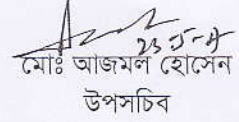 মোঃ আজমল হোসেন
উপসচিব